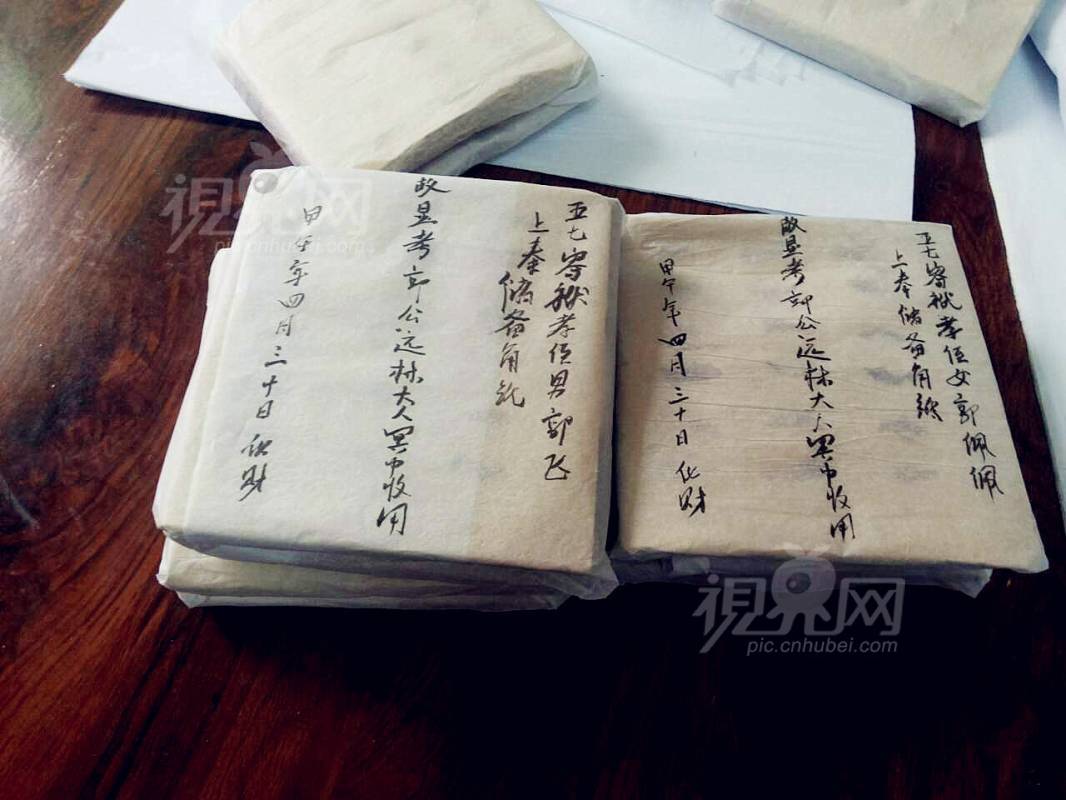 五七寄狱孝侄男郭飞
上奉储备角纸
故显考郭公远林大人冥中收用
甲午年四月三十日化财
五七寄狱孝侄女郭佩佩
上奉储备角纸
故显考郭公远林大人冥中收用
甲午年四月三十日化财
視界网
pic.cnhubei.com
視界网
pic.cnhubei.com